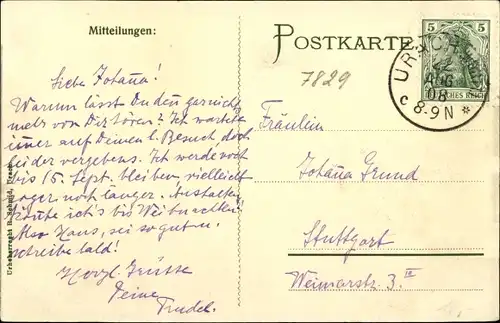 Mitteilungen:
POSTKARTE
7829
5 5
DEUTSCHES REICH
URACH
AUG
08
C 8-9N *
Liebe Johana!
Warum lässt Du den garnichts
mehr von Dir hören? Ich wartete
immer auf Deinen l. Besuch doch
leider vergebens. Ich werde noch
bis 15. Sept. bleiben vielleicht
sogar noch länger.
bis Weihnachten!
Also Hans, sei so gut u.
schreibe bald!
Herzl. Grüsse
Deine
Trudel.
Fräulein
Johana Grund
Stuttgart
Weimarstr. 3 III
Urheberrecht B. Schmid, Urach